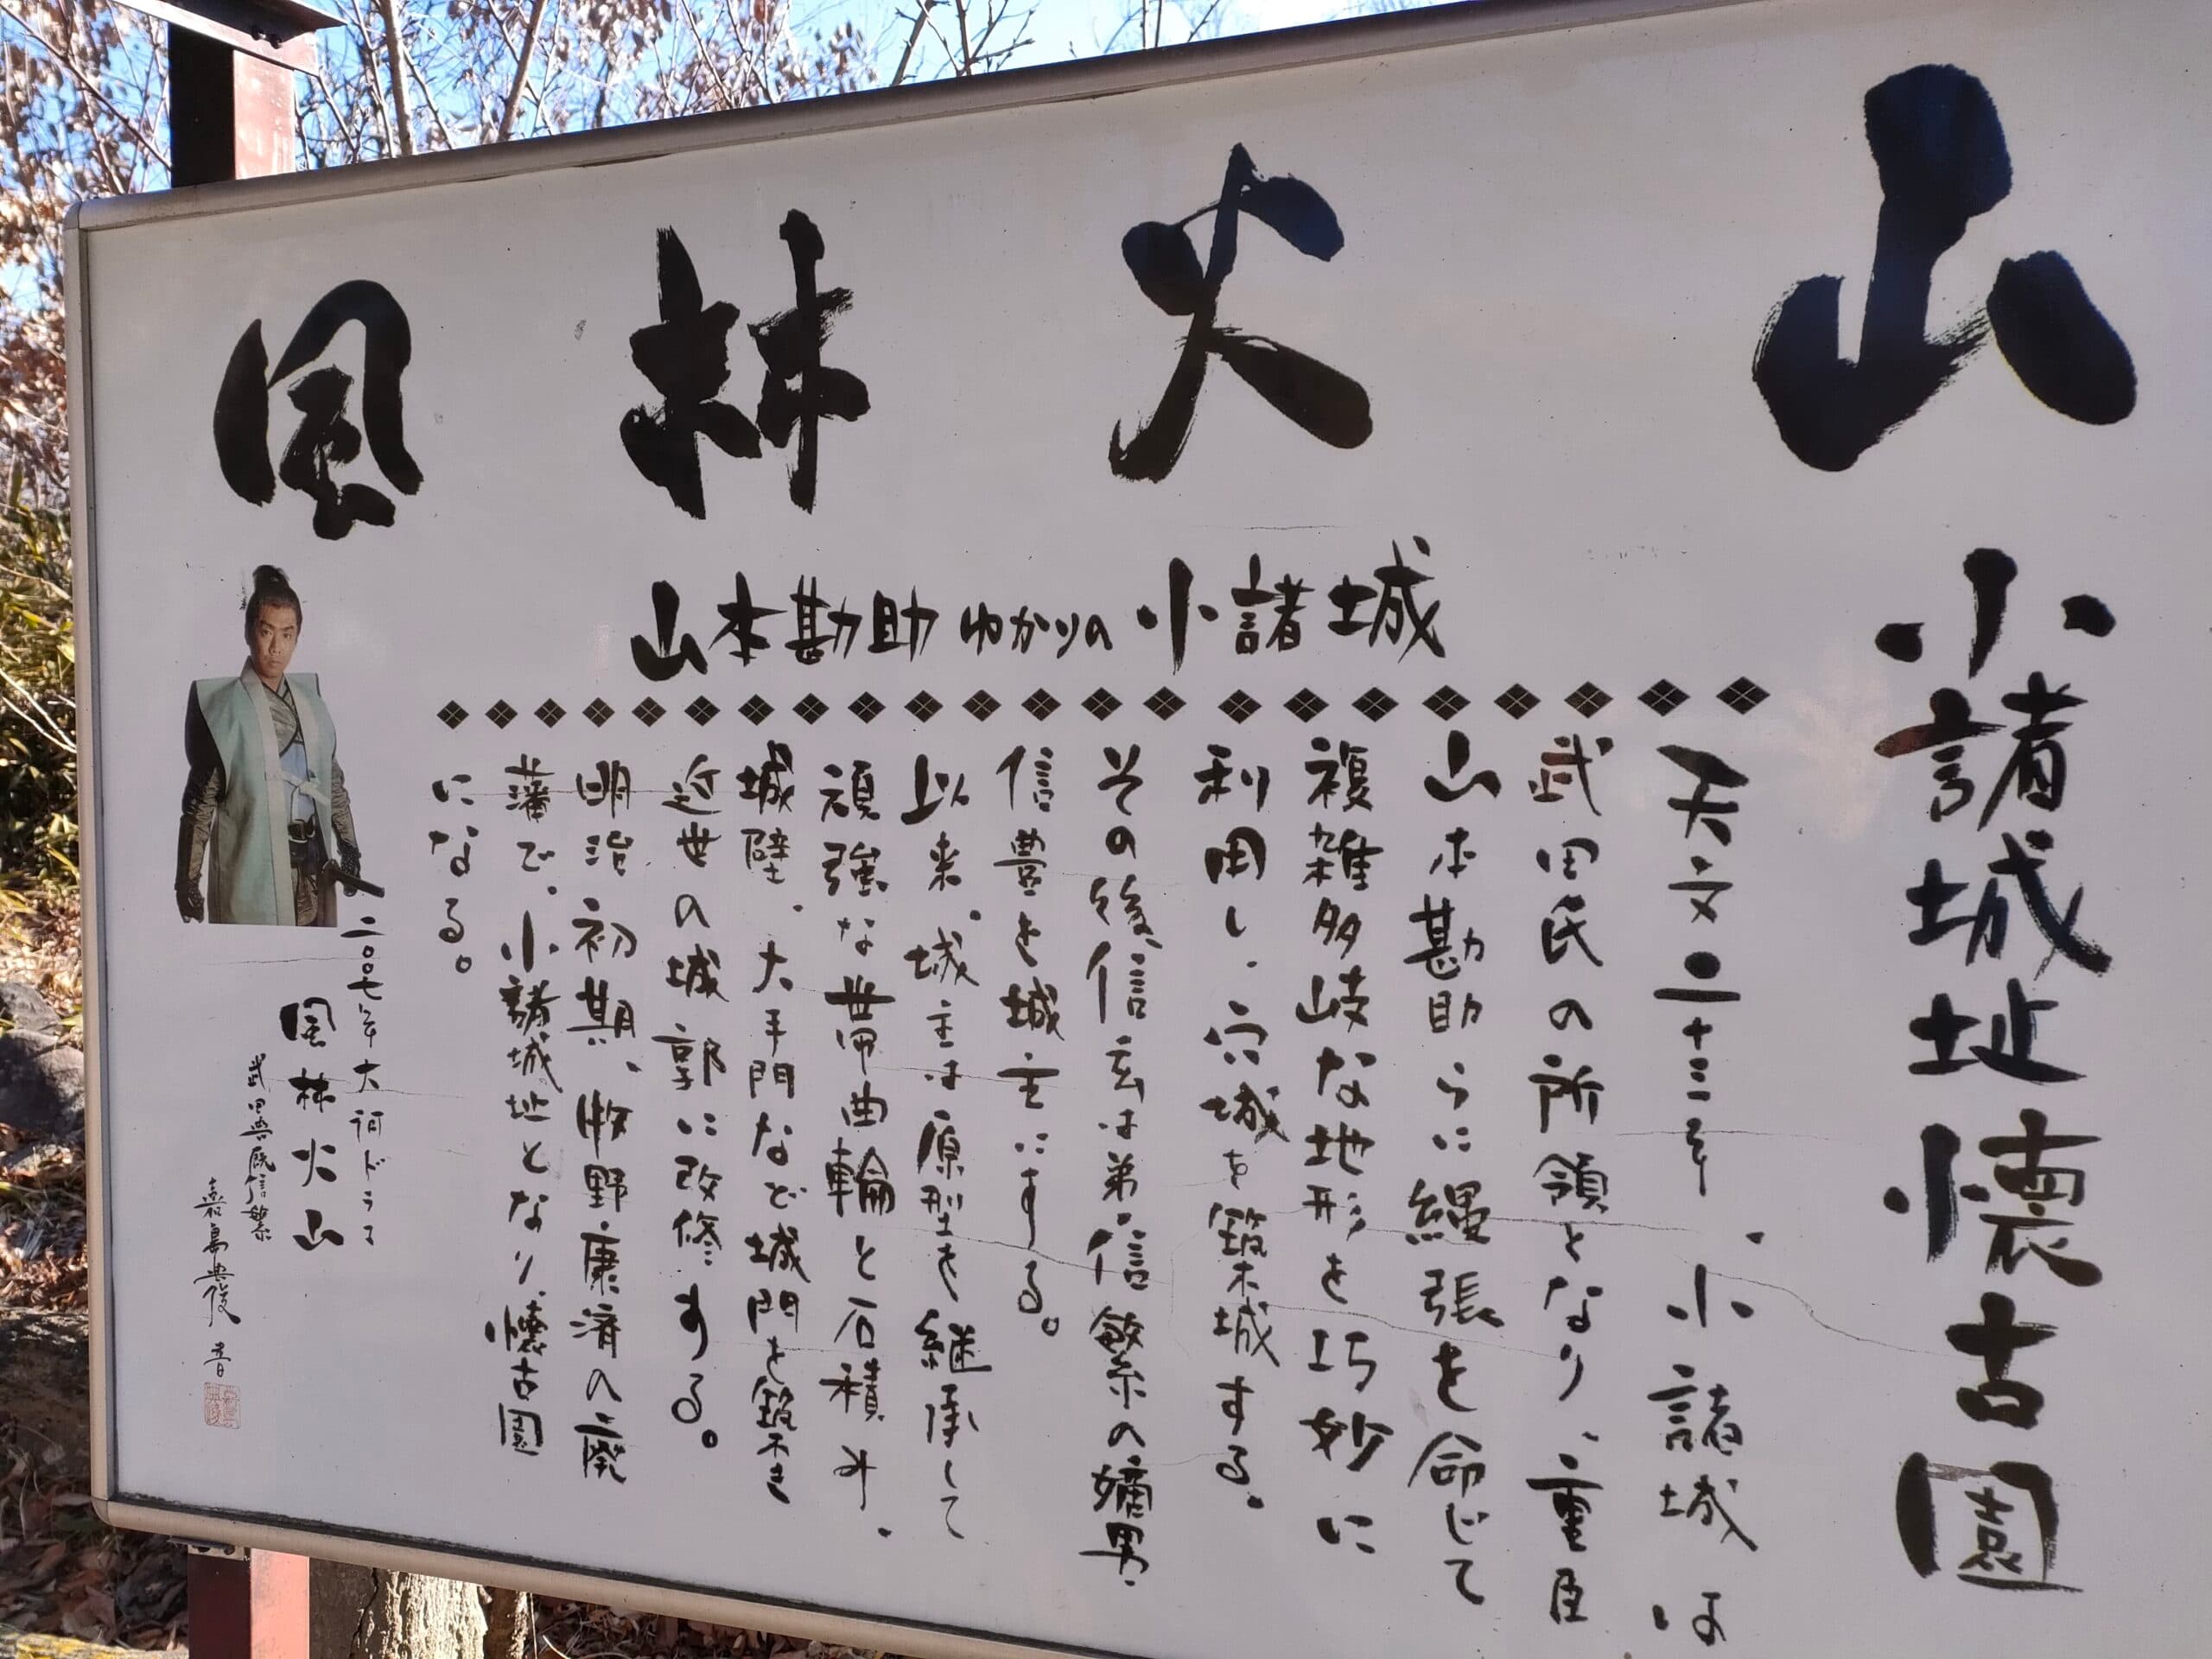 風林火山
小諸城址懐古園
山本勘助ゆかりの小諸城
天文二十三年、小諸城は
武田氏の所領となり、重臣
山本勘助らに縄張を命じて
複雑多岐な地形を巧妙に
利用し、穴城を築城する。
その後、信玄は弟信繁の嫡男、
信豊を城主にする。
以来、城主は原型を継承して
頑強な帯曲輪と石積み、
城壁、大手門など城門を築き
近世の城郭に改修する。
明治初期、牧野康済の廃
藩で、小諸城址となり、懐古園
になる。
二〇〇七年大河ドラマ
風林火山
武田典厩信繁
嘉島典俊 書